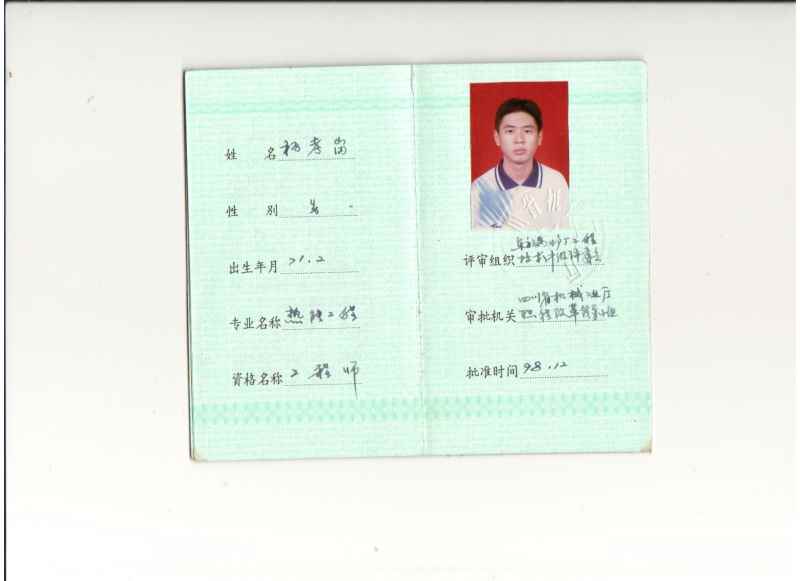 姓 名 杨孝
性 别 男
出生年月 71.2
专业名称 热能工程
资格名称 工程师
评审组织
技术
评审
审批机关 四川省机械工业厅
职称改革领导小组
批准时间 98.12